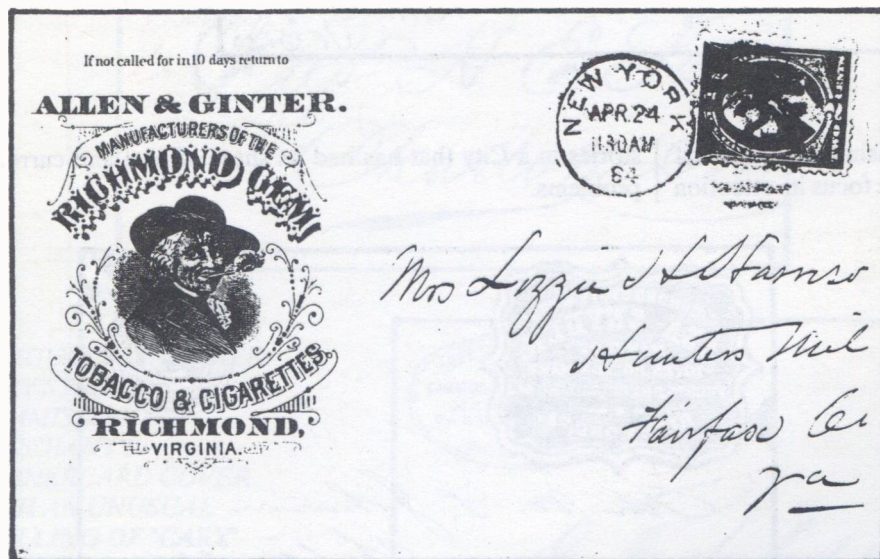 If not called for in 10 days return to
ALLEN & GINTER.
MANUFACTURERS OF THE
RICHMOND GEM
TOBACCO & CIGARETTES.
RICHMOND,
VIRGINIA.
NEW YORK
APR. 24
1130AM
Mrs Lizzie
Hunters Mil
Fairfax Co
Va